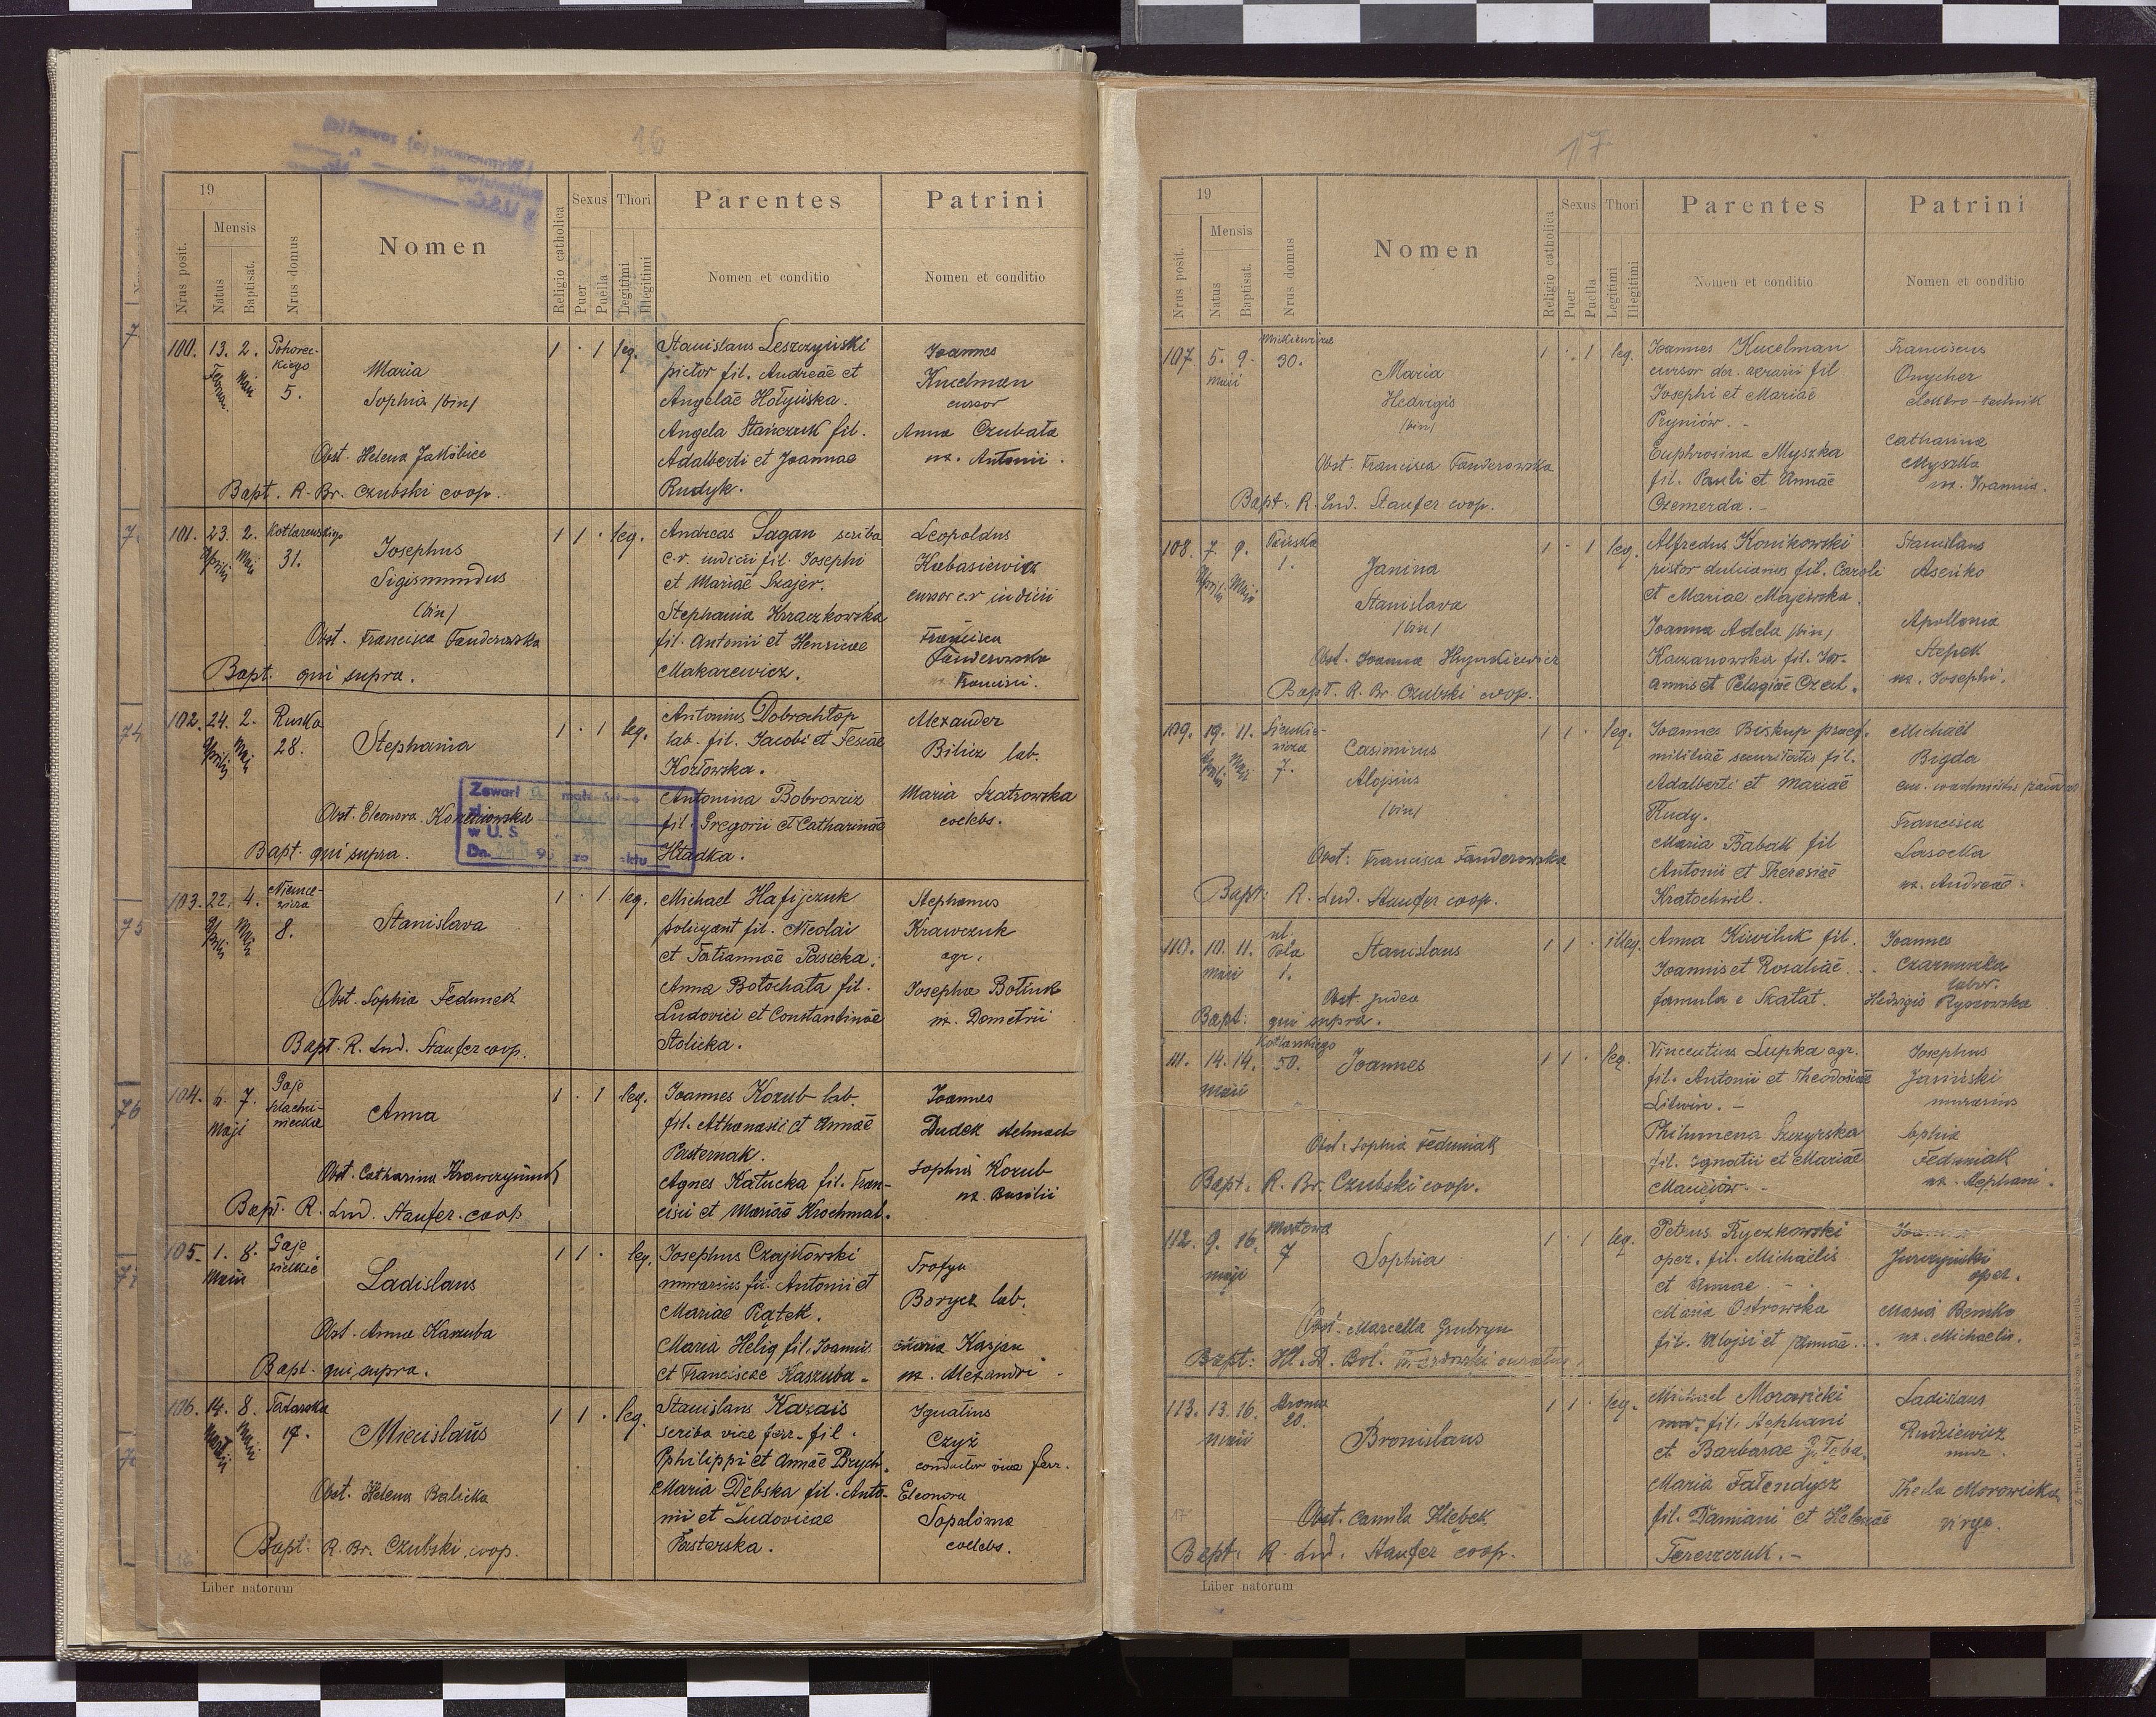 16
19
Nrus posit.
Mensis
Natus
Baptisat.
Nrus domus
Nomen
Religio catholica
Sexus
Puer
Puella
Thori
Legitimi
Illegitimi
Parentes
Nomen et conditio
Patrini
Nomen et conditio
100. 13. 2. Pohorec-
kiego
5.
Maria
Sophia /bin/
Obst. Helena Jakóbice
Bapt. R. Br. Czubski coop.
1 . 1 leg.
Stanislaus Leszczyński
pictor fil. Andreae et
Angelae Hołyńska.
Angela Stańczuk fil.
Adalberti et Joannae
Rudyk.
Joannes
Knelman
cursor
Anna Czubata
ux. Antonii.
101. 23. 2. Kotlarewskiego
Aprilis Maii 31.
Josephus
Sigismundus
(bin)
Obst. Francisca Fanderowska
Bapt. qui supra.
1 1 . leg.
Andreas Sagan scriba
c.r. iudicii fil. Josephi
et Mariae Szajer.
Stephania Kraczkowska
fil. Antonii et Henricae
Makarewicz.
Leopoldus
Kubasiewicz
cursor c.r iudicii
Francisca
Fanderowska
Francisci.
102. 24. 2. Ruska
Aprilis Maii 28.
Stephania
Obst. Eleonora
Bapt. qui supra.
1 . 1 leg.
Antonius Dobrochtop
lab. fil. Jacobi et Tesiae
Kozłowska.
Antonina Bobrowicz
fil. Gregorii et Catharinae
Hładka.
Alexander
Bilicz lab.
Maria Szatrowska
coelebs.
Zawarł
w U. S.
Dn.
103. 22. 4. Niemce-
wicza
Aprilis Maii 8.
Stanislava
Obst. Sophia Fedunek
Bapt. R. Lud. Staufer coop.
1 . 1. leg.
Michael Hafijczuk
policyant fil. Nicolai
et Tatiannae Pasieka.
Anna Botochata fil.
Ludovici et Constantinae
Stolicka.
Stephanus
Krawczuk
agr.
Josepha Botiuk
ux. Demetrii
104. 6. 7. Gaje
szlachci-
nieckie
Maji
Anna
Obst. Catharina
Bapt. R. Lud. Staufer. coop
1 . 1 leg.
Joannes Kozub lab.
fil. Athanasii et Annae
Pasternak.
Agnes Katucka fil. Fran-
cisci et Mariae Krochmal.
Joannes
Dudek stelmach
Sophia Kozub
ux. Basilii
105. 1. 8. Gaje
wielkie
Maii
Ladislaus
Obst. Anna Kaszuba
Bapt. qui supra.
1 1 . leg.
Josephus Czajkowski
murarius fil. Antonii et
Mariae Piątek.
Maria Helig fil. Joannis
et Franciscae Kaszuba.
Trofyn
Borycz lab.
Maria Kasjan
ux. Alexandri
106. 14. 8. Tatarska
Martii Maii 17.
Miecislaus
Obst. Helena Balicka
Bapt. R. Br. Czubski coop.
1 1 . leg.
Stanislaus Kazais
scriba viae ferr. fil.
Philippi et Annae Brych.
Maria Dębska fil. Anto-
nii et Ludovicae
Pasterska.
Ignatius
Czyż
conductor viae ferr.
Eleonora
Sopalóma
coelebs.
Liber natorum
17
19
Nrus posit.
Mensis
Natus
Baptisat.
Nrus domus
Nomen
Religio catholica
Sexus
Puer
Puella
Thori
Legitimi
Illegitimi
Parentes
Nomen et conditio
Patrini
Nomen et conditio
107. 5. 9. Mickiewicza
Maii 30.
Maria
Hedvigis
/bin/
Obst. Francisca Fanderowska
Bapt. R. Lud. Staufer coop.
1 . 1 leg.
Joannes Knelman
cursor aerarii fil
Josephi et Mariae
Pryniów. -
Euphrosina Myszka
fil. Pauli et Annae
Czemerda. -
Franciscus
Onycher
elektro-technik
Catharina
Myszka
ux. Joannis.
108. 7. 9. Ruska
Aprilis Maii 1.
Janina
Stanislava
/bin/
Obst. Joanna
Bapt. R. Br. Czubski coop.
1 - 1 leg.
Alfredus Konikowski
pistor dulciarius fil. Caroli
et Mariae Majewska.
Joanna Adela /bin/
Kaczanowska fil. Jo-
annis et Pelagiae Czeil.
Stanislaus
Aseńko
Apollonia
Stepek
ux. Josephi.
109. 19. 11. Sienkie-
wicza
Aprilis Maii 7.
Casimirus
Alojsius
/bin/
Obst: Francisca Fanderowska
Bapt: R. Lud. Staufer coop.
1 1 . leg.
Joannes Biskup praef.
miliciae securitatis fil.
Adalberti et Mariae
Rudy.
Maria Babak fil
Antonii et Theresiae
Kratochwil.
Michael
Bigda
Francisca
Lasocka
ux. Andreae.
110. 10. 11. ul.
Pola
Maii 1.
Stanislaus
Obst. judea
Bapt: qui supra.
1 1 . illeg.
Anna Kiwiluk fil.
Joannis et Rosaliae
famula e Skałat.
Joannes
Czarnuszka
labor.
Hedvigis Ryszowska
111. 14. 14. Kotlarskiego
50.
Maii
Joannes
Obst. Sophia Feduniak
Bapt. R. Br. Czubski coop.
1 1 . leg.
Vincentius Lupka agr.
fil. Antonii et Theodosiae
Litwin. -
Philumena Szczyrska
fil. Ignatii et Mariae
Maciejów. -
Josephus
Jasiński
murarius
Sophia
Feduniak
ux. Stephani.
112. 9. 16. Mostowa
7
Maji
Sophia
Obst. Marcella Grubryn
Bapt:
1 . 1 leg.
Petrus Ryczkowski
oper. fil. Michaelis
et Annae. -
Maria Ostrowska
fil. Alojsi et Annae..
Jurczyński
oper.
Maria Bemko
ux. Michaelis.
113. 13. 16.
20.
Maii
Bronislaus
Obst. Camila Klebek
Bapt. R. Lud. Staufer coop.
1 1 . leg.
Michael Morawicki
mur. fil. Stephani
et Barbarae
Maria Fatendycz
fil. Damiani et Helenae
Tereszczuk. -
Ladislaus
Rudziewicz
mur.
Thecla Morowicka
virgo.
17
Liber natorum